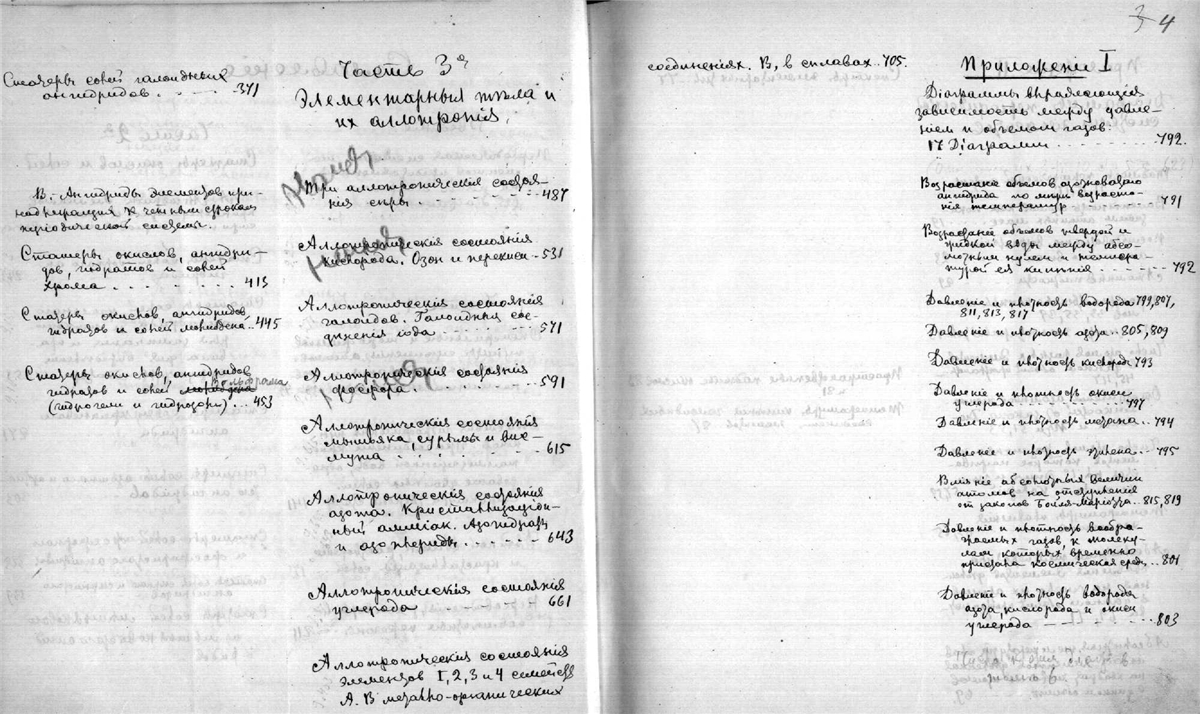 Статеры солей галоидных
ангидридов. . . . . . . 371
В. Ангидриды элементов при-
надлежащих к четным срокам
периодической системы.
Статеры окислов, ангидри-
дов, гидратов и солей
хрома . . . . . . . 413
Статеры окислов, ангидридов
гидратов и солей молибдена . . 445
Статеры окислов, ангидридов
гидратов и солей вольфрама
(гидрогели и гидрозоли) . . 453
Часть 3я
Элементарныя тѣла и
их аллотропія.
Три аллотропическия состоя-
ния серы . . . . . . . 487
Аллотропическія состоянія
кислорода. Озон и перекиси . . 531
Аллотропическія состоянія
галоидов. Галоидныя сое-
динения иода . . . . . . 571
Аллотропическія состоянія
фосфора. . . . . . . 591
Аллотропическія состоянія
мышьяка, сурьмы и вис-
мута . . . . . . . 615
Аллотропическія состоянія
азота. Кристаллизацион-
ный аммиак. Азогидраты
и . . . . . . 643
Аллотропическія состоянія
углерода . . . . . . 661
Аллотропическія состоянія
элементов 1, 2, 3 и 4 семейств
А. В металло-органических
соединениях. В, в сплавах . . 705.
4
Приложеніе I
Діаграммы выражающія
зависимость между давле-
нием и объемом газов.
17 Діаграмм . . . . . . 792.
Возрастание объемов азотноватаго
ангидрида по мѣрѣ возраста-
нія температур . . . . . . 791
Возрастание объемов твердой и
жидкой воды между абсо-
лютным нулем и темпера-
турой ея кипѣнія . . . . . . 792
Давление и плотность водорода 799, 807,
811, 813, 817
Давление и плотность азота . . 805, 809
Давление и плотность кислорода 793
Давление и плотность окиси
углерода . . . . . . 797
Давление и плотность метана . . 794
Давление и плотность этилена . . 795
Вліяніе абсолютныя величин
атомов на отступления
от законов Бойля-Мариотта . . 815, 819
Давление и плотность вообра-
жаемых газов, к молеку-
лам которых временно
придана космическая среда . . 801
Давление и плотность водорода
азота, кислорода и окиси
углерода . . . . . . 803